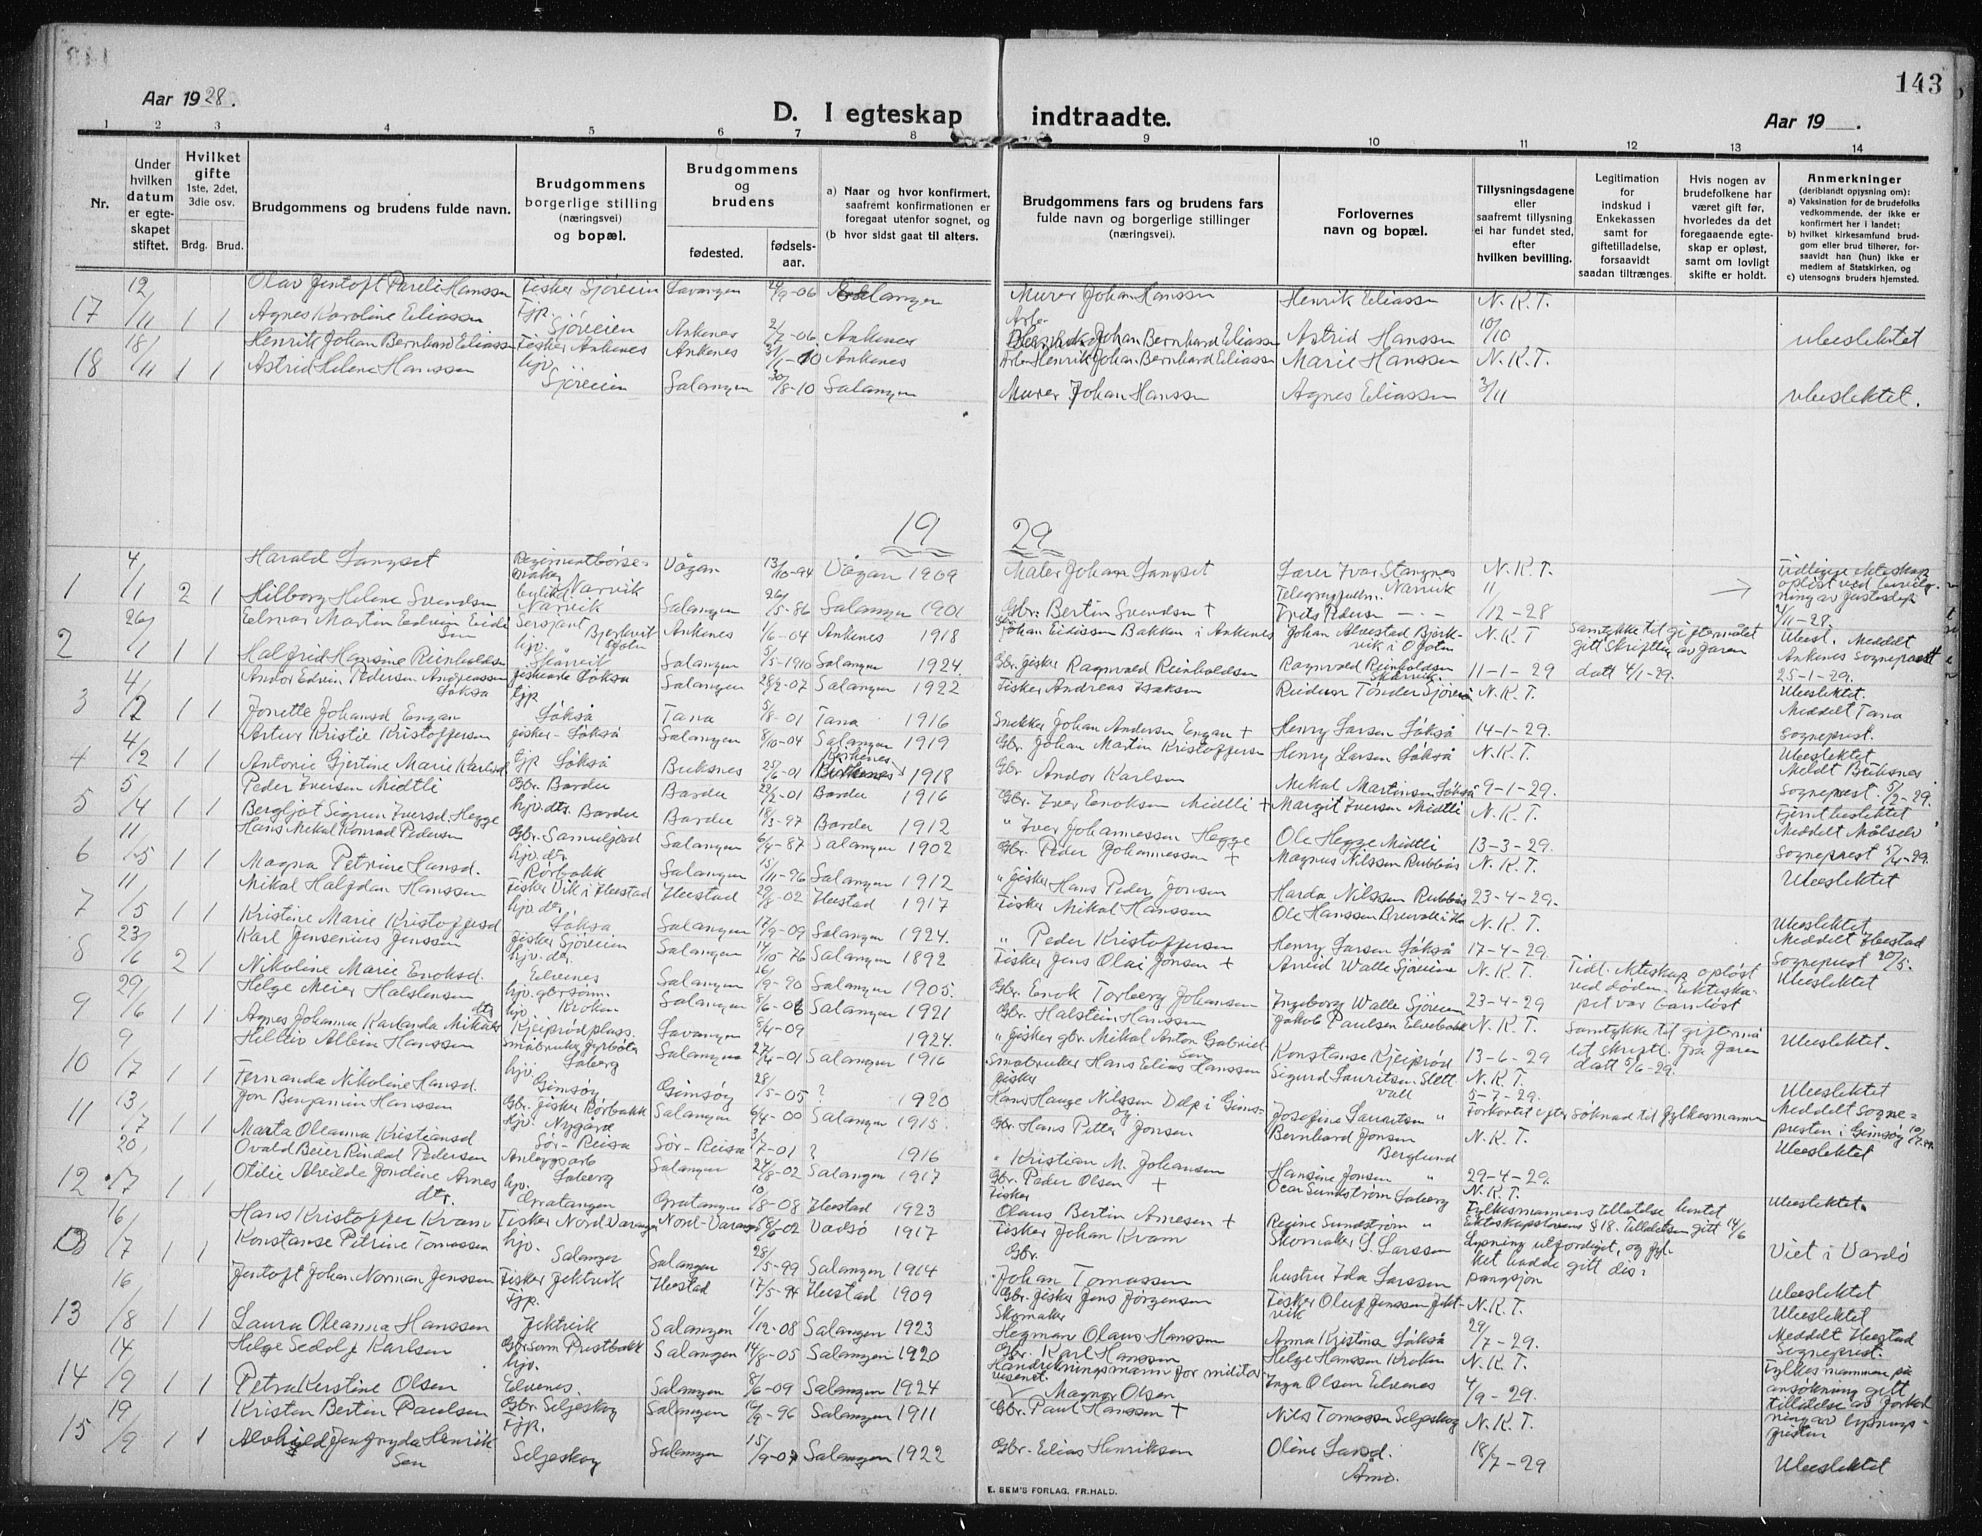 143
Aar 1928.
D. I egteskap indtraadte.
Aar 19 .
1 2 3 4 5 6 7 8 9 10 11 12 13 14
Nr.
Under hvilken datum er egteskapet stiftet.
Hvilket gifte 1ste, 2det, 3die osv.
Brdg. Brud.
Brudgommens og brudens fulde navn.
Brudgommens borgerlige stilling (næringsvei) og bopæl.
Brudgommens og brudens
fødested. fødselsaar.
a) Naar og hvor konfirmert, saafremt konfirmationen er foregaat utenfor sognet, og
(b hvor sidst gaat til alters.
Brudgommens fars og brudens fars fulde navn og borgerlige stillinger (næringsvei).
Forlovernes navn og bopæl.
Tillysningsdagene eller saafremt tillysning ei har fundet sted, efter hvilken bevilling.
Legitimation for indskud i Enkekassen samt for giftetilladelse, forsaavidt saadan tiltrænges.
Hvis nogen av brudefolkene har været gift før, hvorledes da det foregaaende egteskap er opløst, samt om lovligt skifte er holdt.
Anmerkninger (deriblandt opjysning om):
a) Vaksination for de brudefolks vedkommende, der ikke er konfirmert her i landet:
b) hvilket kirkesamfund brudgom eller brud tilhører, forsaavidt han (hun) ikke er medlem af Statskirken, og
c) utensogns bruders hjemsted.
17 12/11 1 1 Olav Jentoft Pareli Hanssen Fisker Sjøveien Lavangen 06 Salangen Murer Johan Hanssen Henrik Eliassen N.K.T.
Agnes Karoline Eliassen Fjp. Sjøveien Ankenes 06 Ankenes Johan Bernhard Eliassen Astrid Hanssen 10/10 Ubeslektet
18 18/11 1 1 Henrik Johan Bernhard Eliassen Fisker Ankenes Ankenes 31/1-10 Ankenes Arb. Henrik Johan Bernhard Eliassen Marie Hanssen N.K.T.
Astrid Helene Hanssen hjv. Sjøveien Salangen 30/8-10 Salangen Murer Johan Hanssen Agnes Eliassen 3/11 Ubeslektet.
19 29
1 4/1 2 1 Harald Vågan 13/10-94 Vågan 1909 Maler Johan Lærer Ivar Stangnes Narvik N.K.T.
Hilborg Helene Svendsen Narvik Salangen 26/5-86 Salangen 1901 Gbr. Bertin Svendsen + 1/12-28
2 26/1 1 1 Einar Martin Edvin Sersjant Bjerkvik Ankenes 1/6-04 Ankenes 1918 Johan Bakken i Ankenes Johan N.K.T Samtykke til giftermålet gitt skriftlig av faren
Halfrid Hansine Reinholdsen hjv. Salangen 5/5-1910 Salangen 1924. Gbr. fisker Ragnvald Reinholdsen Ragnvald Reinholdsen 11-1-29 datt 4/1-29. Ubesl. Meddelt Ankenes sogneprest 25-1-29.
3 4/2 1 1 Andor Edvin Pedersen Andreassen Løksa Løksa Salangen 28/2-07 Salangen 1922 Fisker Andreas Isaksen N.K.T.
Jonette Johansd Engan fjp. Løkså Tana 5/8-01 Tana 1916 Snekker Johan Andersen Engan + Henry Larsen Løkså 14-1-29. Ubeslektet. Meddelt Tana sogneprest.
4 4/2 1 1 Artur Kristie Kristoffersen fisker - Løkså Salangen 8/10-04 Salangen 1919 Gbr. Johan Martin Kristoffersen Henry Larsen Løkså N.K.T.
Antonie Gjertine Marie Karlsd. fjp Løkså Buksnes 28/6-01 1918 Gbr Andor Karlsen Mikal Martinsen Løkså 9-1-29. Ubeslektet Meldt Buksnes sogneprest. 5/2-29.
5 5/4 1 1 Peder Iversen Midtli Gbr. Bardu Bardu 22/2-01 Bardu 1916 Gbr. Iver Enoksen Midtli + Margit Iversen Midtli N.K.T.
Bergljot Sigrun Iversd. Hegge hjv. dtr. Bardu Bardu 18/3-97 Bardu 1912 " Iver Johannessen Hegge Ole Hegge Midtli 13-3-29.
6 11/5 1 1 Hans Mikal Konrad Pedersen Gbr. Salangen 6/4-87 Salangen 1902 Gbr. Peder Johannessen + Magnus Nilssen Rubbås N.K.T.
Magna Petrine Hansd. hjv. dtr. Rørbakk Salangen 15/11-96 Salangen 1912 " fisker Hans Peder Jensen Harda Nilssen Rubbås 23-4-29. Ubeslektet
7 11/5 1 1 Mikal Halfdan Hanssen Fisker Vik i Ibestad Ibestad 29/8-02 Ibestad 1917 Fisker Mikal Hanssen Ole Hanssen N.K.T.
Kristine Marie Kristoffersd hjv. dtr. Løkså Salangen 17/9-09 Salangen 1924. " Peder Kristoffersen Henry Larsen Løkså 17-4-29. Ubeslektet Meddelt Ibestad sogneprest 20/5.
8 23/6 2 1 Karl Jensenius Jenssen fisker Sjøveien Salangen 14/10-76 Salangen 1892 Fisker Jens Olai Jensen + Arvid Walle Sjøveien N.K.T. Tidl. ekteskap opløst ved døden. Ekteskapet var barnløst
Nikoline Marie Enoksd. hjv. dtr. Elvenes Salangen 26/9-90 Salangen 1905. Gbr. Enok Torberg Johansen Ingeborg Walle Sjøveien 23-4-29 Ubeslektet
9 29/6 1 1 Helge Meier Halstensen hjv. gbrsønn. Kroken Salangen 8/6-06 Salangen 1921 Gbr. Halstein Hanssen Jakob Paulsen Elvebakk N.K.T. Samtykke til giftermålet skriftl. fra faren datt 5/6-29.
Agnes Johanna Karlanda Mikal dtr hjv. Lavangen 8/4-09 1924. " fisker gbr. Mikal Anton Gabrielsen Konstanse Kjeiprød 13-6-29 Ubeslektet.
10 9/7 1 1 Hilldiv Albin Hanssen Småbruker Soberg Salangen 27/4-01 Salangen 1916 Småbruker Hans Elias Hanssen Sigurd Lauritsen Slettvall N.K.T.
Fernanda Nikoline Hansd. hjv. Gimsøy Gimsøy 28/5-05 ? 1920 fisker Hans Hauge Nilssen Dalp i Gimsøy Josefine Lauritsen " 5-7-29. Ubeslektet Meddelt sognepresten i Gimsøy
11 13/7 1 1 Jon Benjamin Hanssen Gbr. fisker Rørbakk Salangen 6/4-00 Salangen 1915. Gbr. Hans Petter Jensen Bernhard Jensen Berglund N.K.T. Forkortet efter søknad til fylkesmannen
Marta Oleanna Kristiansd hjv. Nygård Sør-Reisa Sør-Reisa 3/7-01 ? 1916 " Kristian M. Johansen Hansine Jensen " 29-4-29. Ubeslektet
12 20/7 1 1 Ovald Beier Rindal Pedersen Anleggsarb Soberg Salangen 24/8-02 Salangen 1917 Gbr. Peder Olsen + Oscar Sundstrøm Soberg N.K.T.
Otilie Alvilde Jondine Arnesdtr. hjv. Gratangen Gratangen 10/8-08 Ibestad 1923 Fisker Olaus Bertin Arnesen + Regine Sundstrøm " Fylkesmannens tillatelse hentet Ekteskapslovens § 18. Tillatelsen gitt 14/6 Ubeslektet.
13 16/7 1 1 Hans Kristoffer Kvam Fisker Nord Varanger Nord-Varanger 18/6-02 Vadsø 1917 Fisker Johan Kvam Skomaker G. Larssen Lysning utferdiget, og fylket hadde gitt dispangsjon
Konstanse Petrine Tomassen hjv. Salangen Salangen 28/5-99 Salangen 1914 Gbr. Johan Tomassen hustru Ida Larssen Viet i Vardø
13 16/8 1 1 Jentoft Johan Norman Jenssen Fisker Jektvik Ibestad 17/5-94 Ibestad 1909 Gbr. fisker Jens Jørgensen Fisker Oluf Jenssen Jektvik N.K.T. Ubeslektet
Laura Oleanna Hanssen Fjp. Jektvik Salangen 1/12-08 Salangen 1923 Skomaker Hegman Olaus Hanssen Anna Kristina Løkså 29/7-29. Ubeslektet Meddelt Ibestad Sogneprest.
14 14/9 1 1 Helge Sedolf Karlsen Gbr. sønn Prestbakk Salangen 14/8-05 Salangen 1920 Gbr. Karl Hanssen Helge Hanssen Kroken N.K.T.
Petra Kerstine Olsen hjv. Elvenes. Salangen 8/6-09 Salangen 1924 Handrekningsmann for militærvesenet Magnor Olsen Inga Olsen Elvenes 4/9-29. Fylkesmannen på ansøkning gitt tillatelse av forkortning av lysningsfristen
15 19/9 1 1 Kristen Bertin Paulsen Gbr. Seljeskog Salangen 96 Salangen 1911 Gbr. Paul Hanssen + Nils Tomassen Seljeskog N.K.T.
Henriksen Fjp. Seljeskog Salangen 15/9-07 Salangen 1922 Gbr. Elias Henriksen Oline Larsd. 18/7-29 Ubeslektet
E. SEM'S FORLAG. FR.HALD.